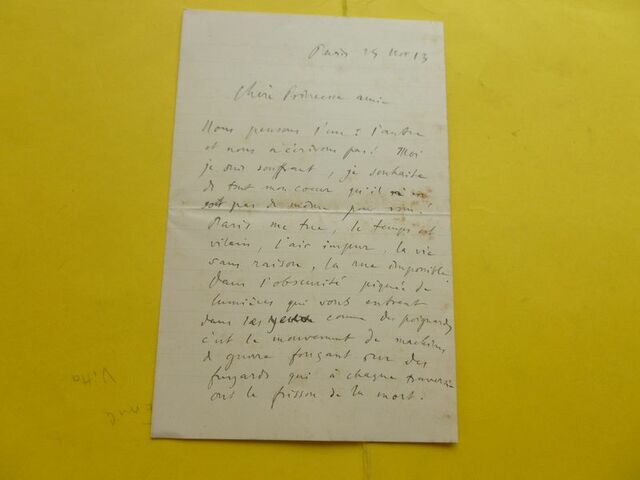 Paris 25 Nov 13
Chère Princesse amie
Nous pensons l'une à l'autre
et nous n'écrivons pas! Moi
je suis souffrant, je souhaite
de tout mon coeur qu'il n'en
soit pas de même pour vous!
Paris me tue, le temps est
vilain, l'air impur, la vie
sans raison, la rue impossible
Dans l'obscurité piquée de
lumières qui vous entrent
dans les yeux comme des poignards
c'est le mouvement de machines
de guerre fonçant sur des
fuyards qui à chaque traversée
ont le frisson de la mort.
Vitta